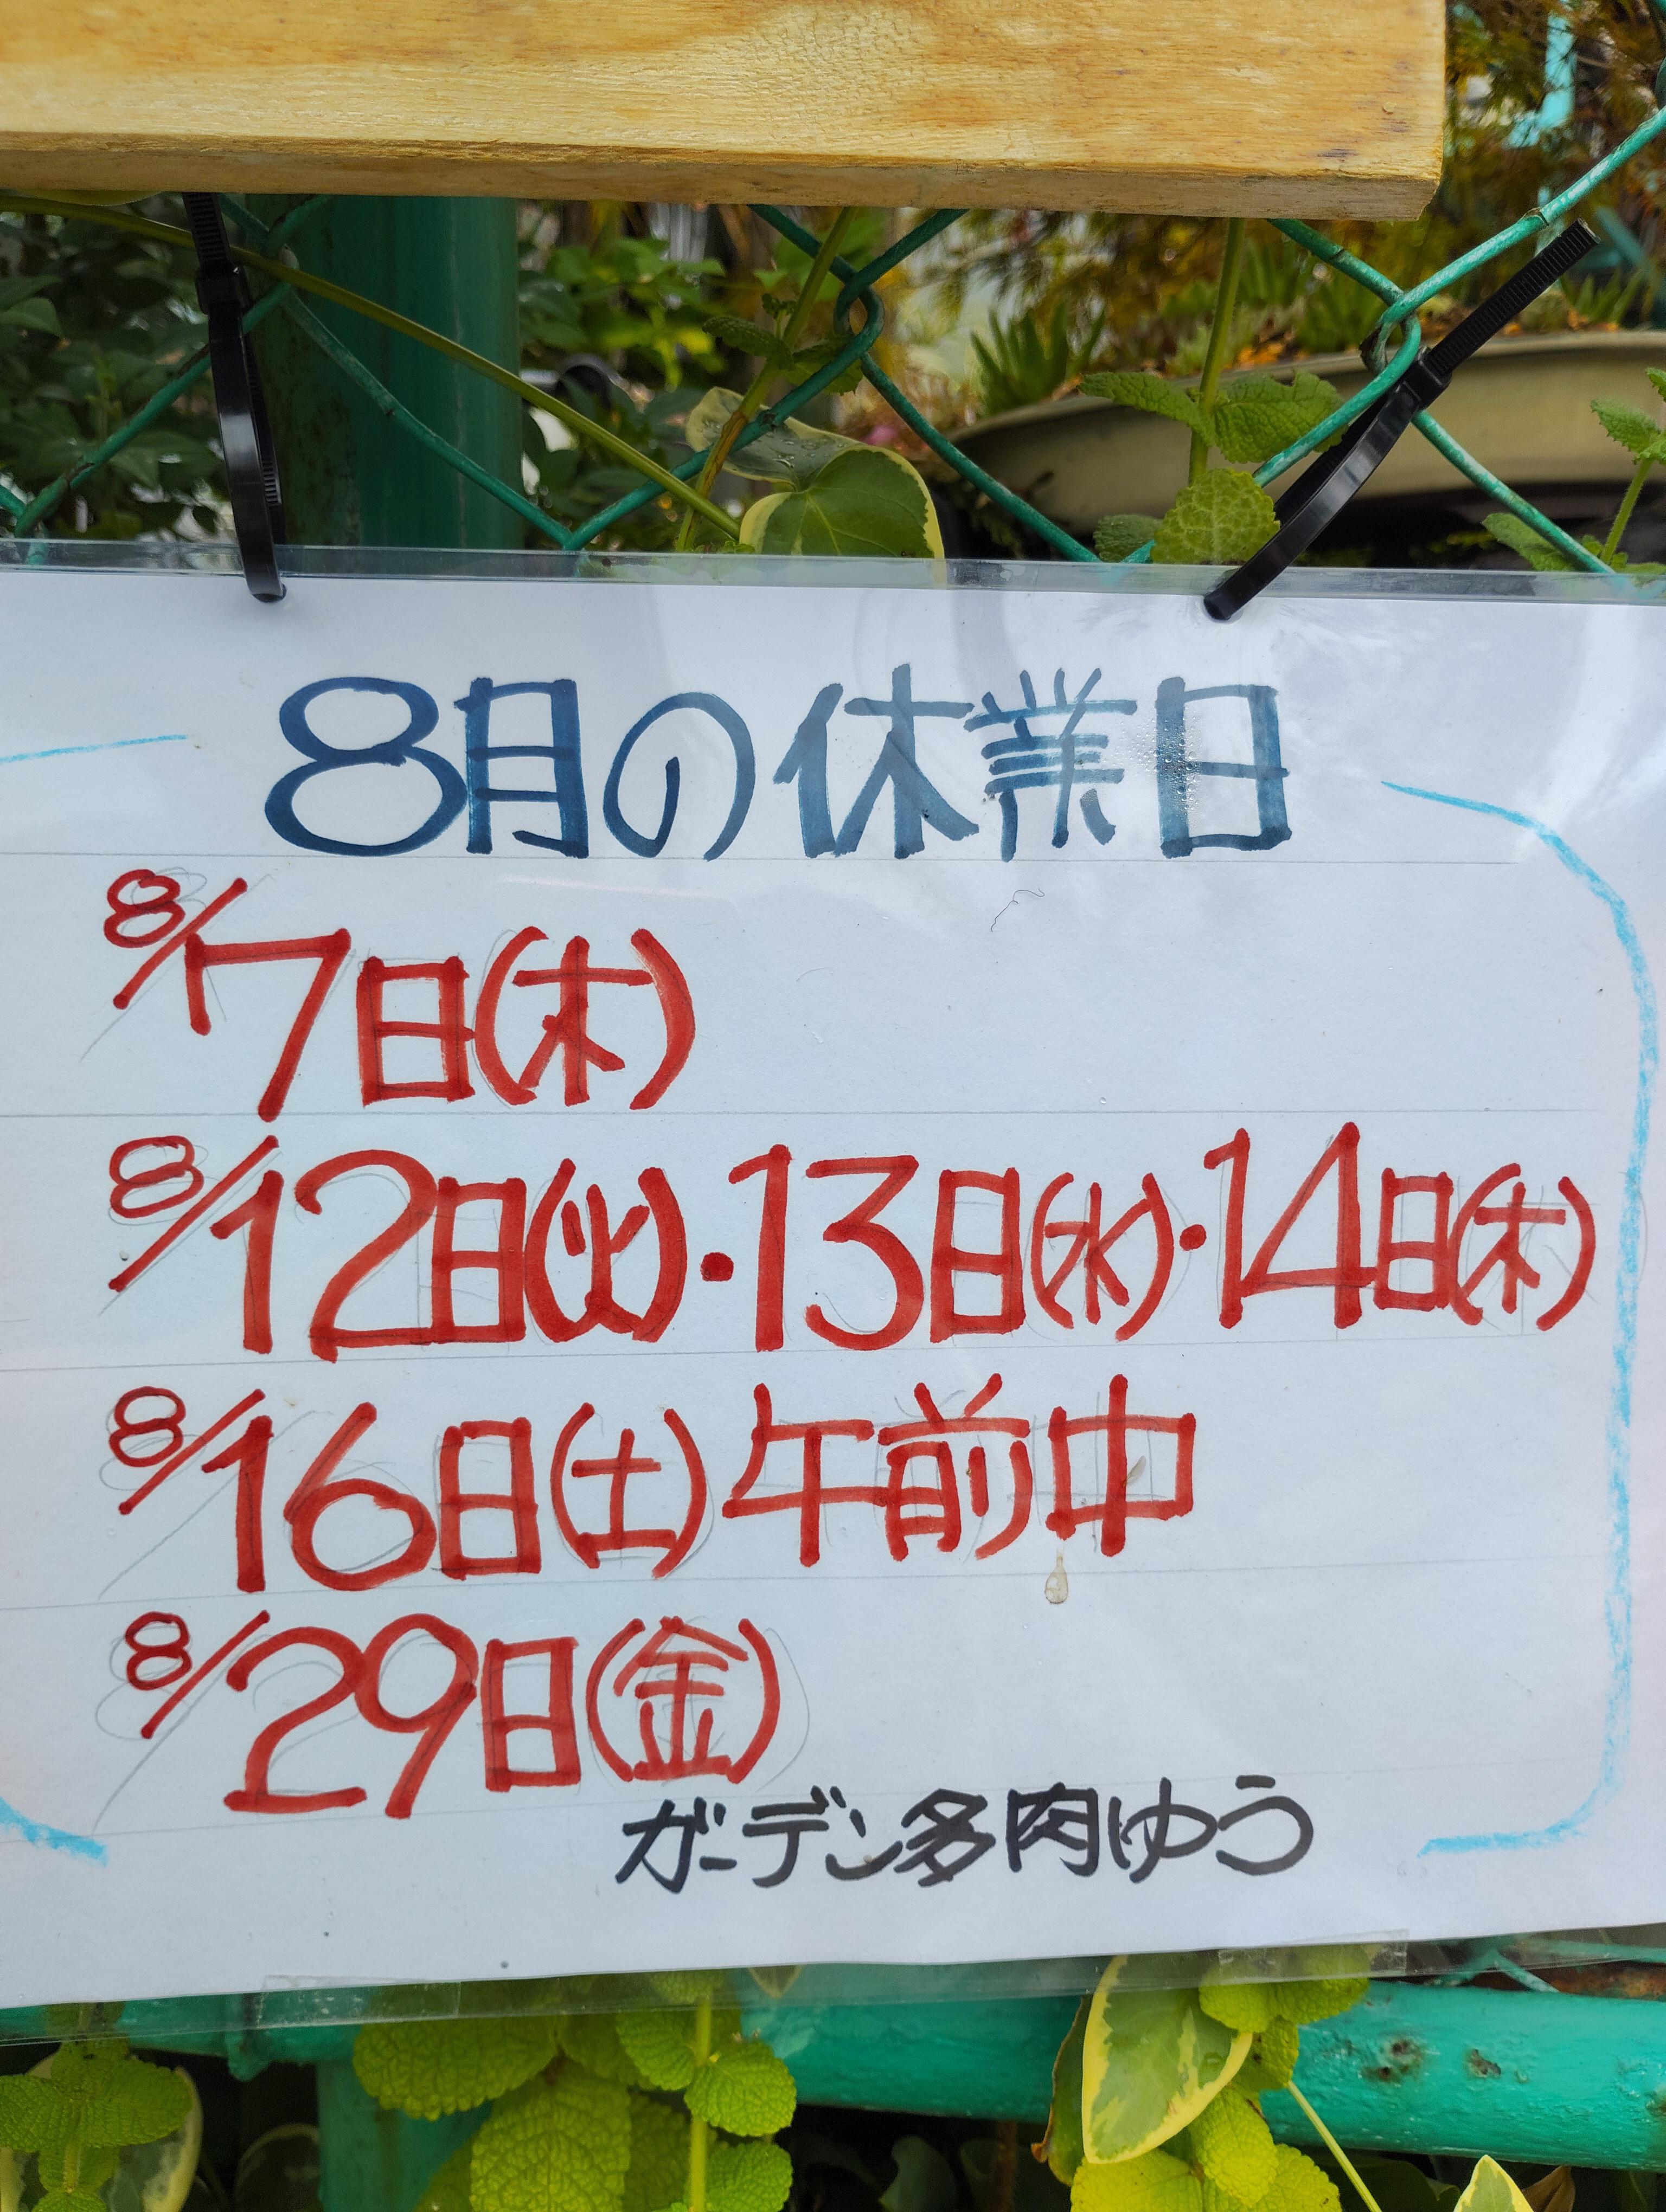 8月の休業日
8/7日(木)
8/12日(火)・13日(水)・14日(木)
8/16日(土)午前中
8/29日(金)
ガーデン多肉ゆう